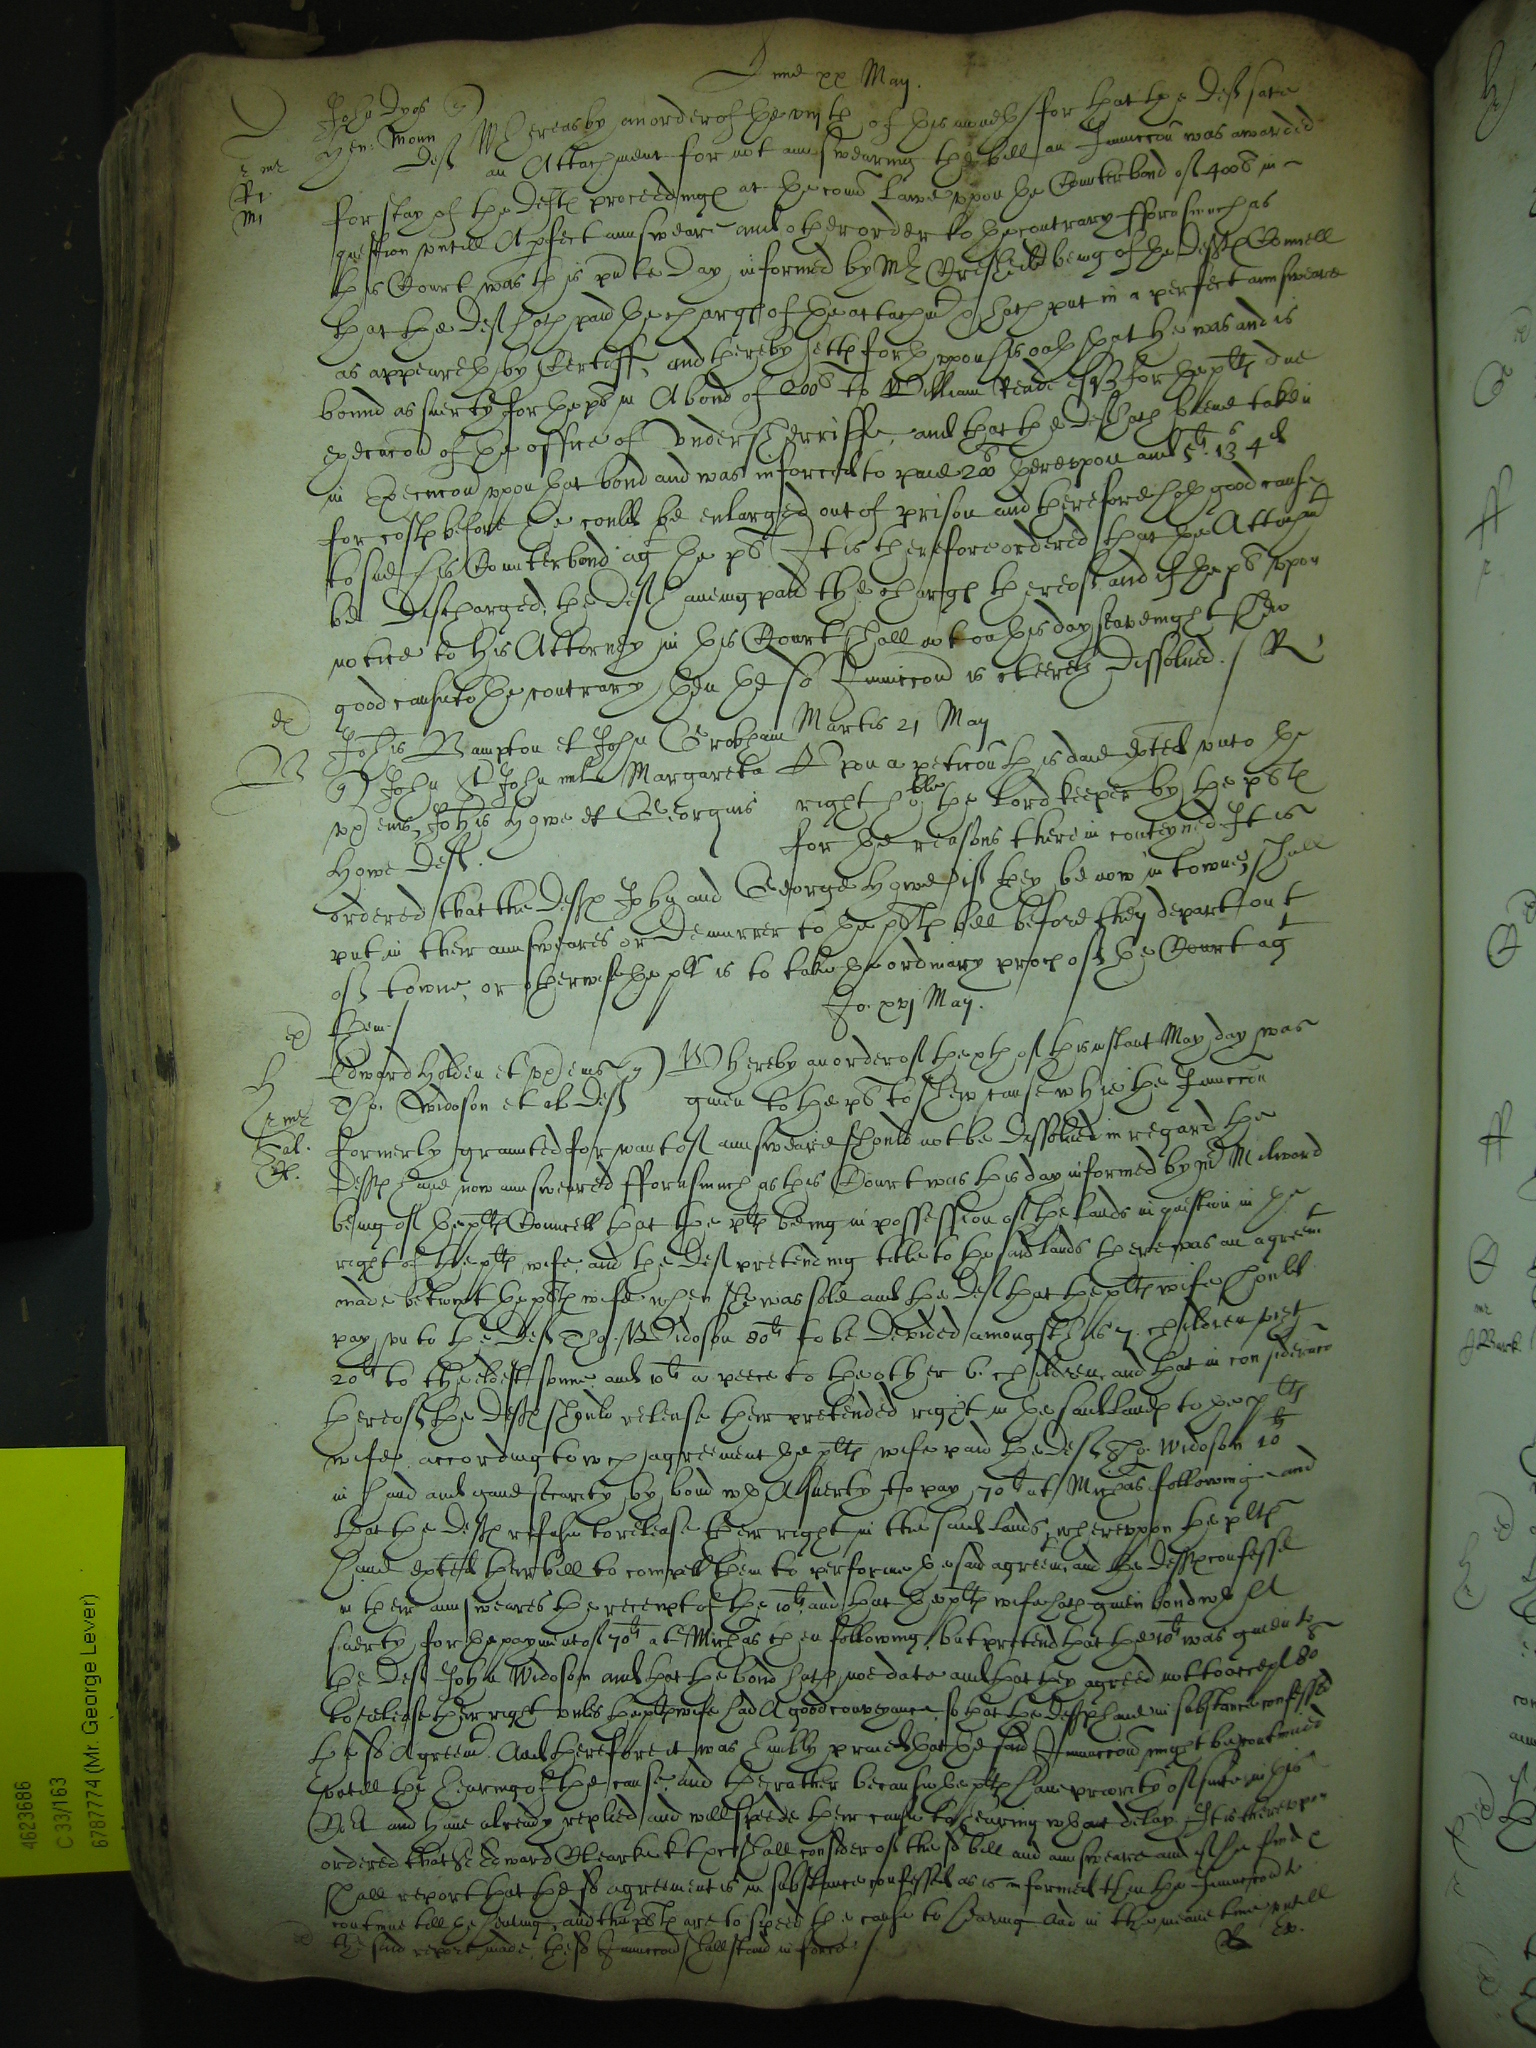 Lune xx May.
John Dyos q)
Hen: Moun Deft Whereas by an order of the viijth of this moneth for that the Deft sate
an Attachment for not aunswearing the bill an Iniuccon was awarded
for stay of the Deftes proceedinges at the comon Lawe vpon the Counterbond of 400l in
question vntill A pfect aunsweare and other order to the contrary fforasmuch as
this Court was this pnte Day informed by Mr being of the Deftes Councell
that the Deft hath paid the charges of the attachmt & hath put in a perfect aunsweare
as appeareth by Certiff, and thereby setth forth vpon his oath that he was and is
bound as suerty for the pl in A bond of 200l to William Reade esq for the pltes due
execucon of the office of vndersherriffe, and that the Deft hath beene taken
in Execucon vpon that bond and was inforced to paie 200l therevpon and 5l 13s 4d
for costes before he could be enlarged out of prison and therefore hath good cause
to sue his Counterbond agt the pl It is therefore ordered that the Attachmt
be Discharged, the Deft haueing paid the charges thereof, and if the pl vpon
notice to his Attorney in this Court shall not on this day seavenight shew
good cause to the contrary then the sd Iniuccon is cleerely Dissolued. / R
Martis 21 May
Johis Bampton et John Grobham
q) John St John mil Margareta
vx eius, Johis Howe et Georgius
Howe Deft.
Vpon a peticon this daie exted vnto the
right hoble the Lord keeper by the pltes
for the reasons therein conteyned It is
ordered that the Deftes John and George Howe if they be now in towne, shall
put in their aunsweares or Demurrer to the pltes bill before they depart out
of towne, or otherwise the plt is to take the ordinary proces of the Court agt
them /
Jo. xvj May.
Edward Holden et vx eius q)
Tho. Widoson et al Deft
Whereby an order of the xth of this instant May day was
giuen to the pl to shew cause whie the Iniuccon
formerly graunted for want of aunsweare should not be Dissolued in regard the
Deftes haue now aunsweared fforasmuch as this Court was this day informed by Mr Milward
being of the pltes Councell that the pltes being in possession of the lands in question in the
right of the pltes wife, and the Deft pretending title to the said lands there was an agreemt
made betwixt the pltes wife when she was sole and the Deft that the pltes wife should
pay vnto the Deft Tho. Widoson 80li to be Devided amongst his 7. children vizt
20li to the eldest sonne, and 10li a peece to the other 6. children, and that in consideracon
thereof the Deftes should release their pretended right in the said landes to the pltes
wife, according to wch agreement the pltes wife paid the Deft Tho. Widoson 10li
in hand and gaue security by bond wth A suerty to pay 70li at Michas following and
that the Deftes refuse to release their right in the said lands, wherevpon the pltes
haue exted their bill to compell them to performe the said agreemt, and the Deftes confesse
in their aunsweares the receipt of the 10li, and that the pltes wife hath giuen bond wth A
suerty for the payment of 70li at Michas then following, but pretend that the 10li was giuen to
the Deft John Widoson and that the bond hath noe date and that they agreed not to accept 80l
to release their right vnles the pltes wife had A good conveyance, so that the Deftes haue in substance confessed
the sd Agreemt. And therefore it was humbly praied that the said Iniuccon might be continued
vntill the hearing of the cause, and the rather because the pltes haue priority of suite in this
Cort and haue already replied and will speede their cause to hearing wthout delay. It is therevpon
ordered that Sr Edward Clearke kt &c shall consider of the sd bill and aunsweare and if he finde &
shall report that the sd agreement is in substance confessed as is informed then the Iniuccon to
continue till the hearing, and the pltes are to speed the cause to hearing And in the meane time vntill
the said report made, the sd Iniuccon shall stand in force. /
R Ex.
4623686
C 33/163
6787774 (Mr. George Lever)